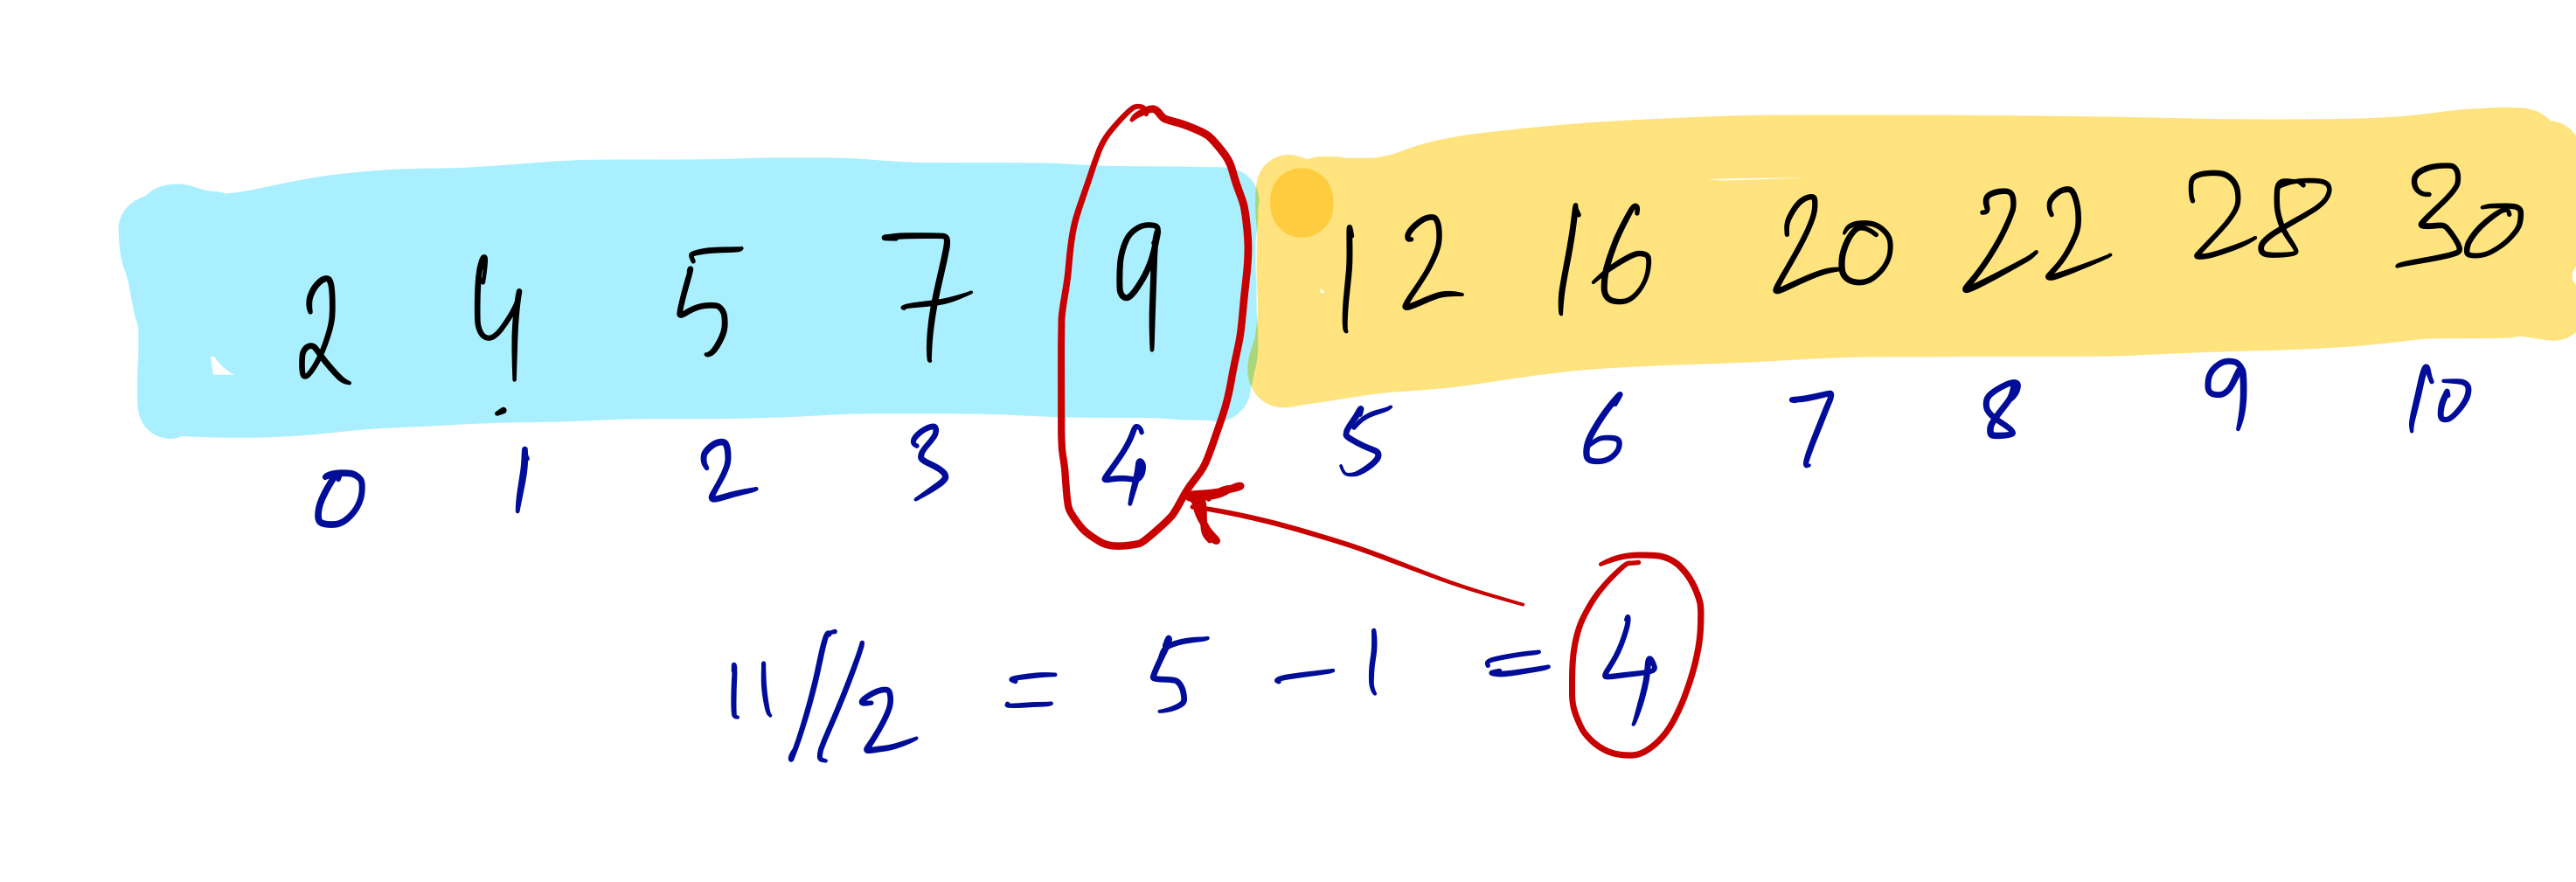 2 4 5 7 9 12 16 20 22 28 30
0 1 2 3 4 5 6 7 8 9 10
11//2 = 5 - 1 = 4